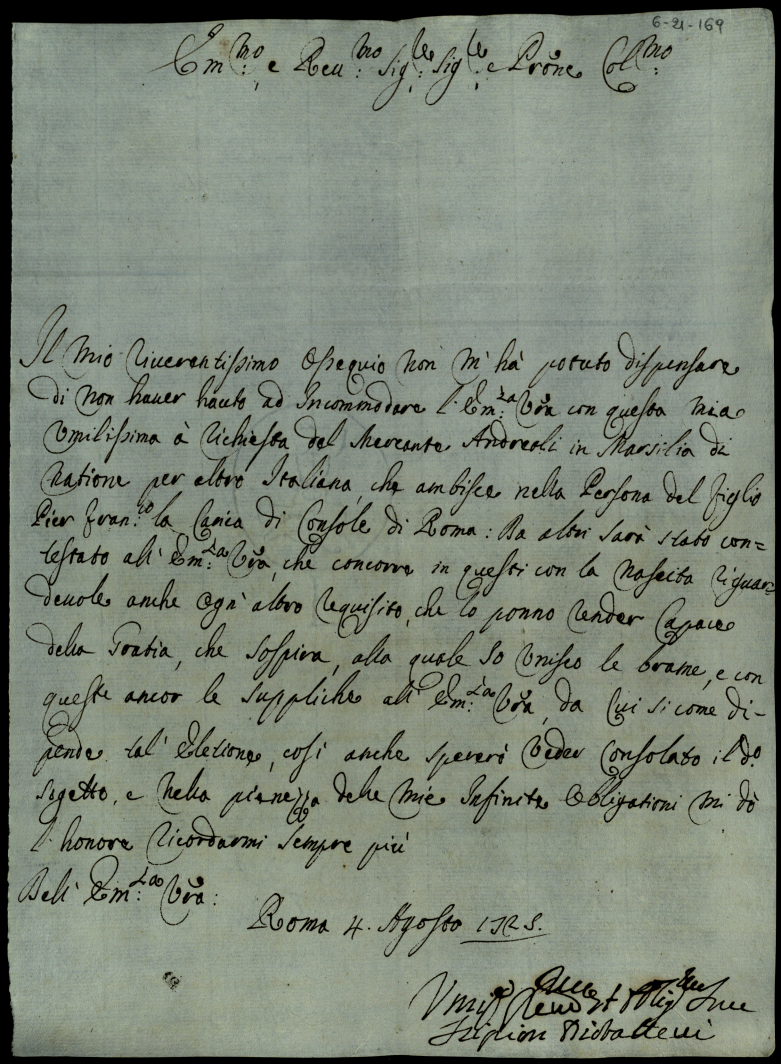 6-21-169
Em:mo e Reu:mo Sig:re Sig:re e Prone Col:mo
Il mio riuerentissimo Ossequio non m' hà potuto dispensare
di non hauer hauto ad Incommodare l' Em:za Vra con questa mia
Umilissima à richiesta del Mercante Andreoli in Marsilia di
Natione per altro Italiana, che ambisce nella Persona del figlio
Pier Fran:co la Carica di Console di Roma: Da altri sarà stato con=
testato all' Em:za Vra, che concorre in questi con la nascita riguar=
deuole anche ogn' altro requisito, che lo ponno render Capace
della Gratia, che sospira, alla quale Io Unisco le brame, e con
queste ancor le suppliche all' Em:za Vra, da Cui si come di-
pende tal' Eletione, così anche spererò veder Consolato il do
sogetto, e nella pienezza delle mie Infinite Obligationi mi dò
l' honore ricordarmi sempre più
Dell' Em:za Vra:
Roma 4. Agosto 1725.